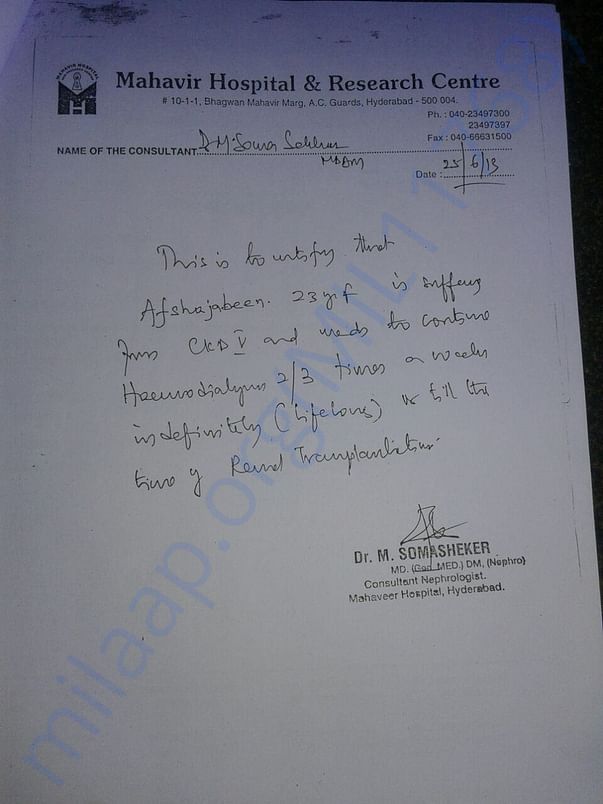 MAHAVIR HOSPITAL
Mahavir Hospital & Research Centre
# 10-1-1, Bhagwan Mahavir Marg, A.C. Guards, Hyderabad - 500 004.
Ph. : 040-23497300
23497397
Fax : 040-66631500
NAME OF THE CONSULTANT Dr M. Soma Sekhar
MD DM
Date : 25/6/13
This is to certify that
Afshajabeen. 23 yr f is suffering
from CKD V and needs to continue
Haemodialysis 2/3 times a weeks
indefinitely (Lifelong) till the
time of Renal Transplantation.
Dr. M. SOMASHEKER
MD. (Gen. MED.) DM, (Nephro)
Consultant Nephrologist.
Mahaveer Hospital, Hyderabad.
milaap.org